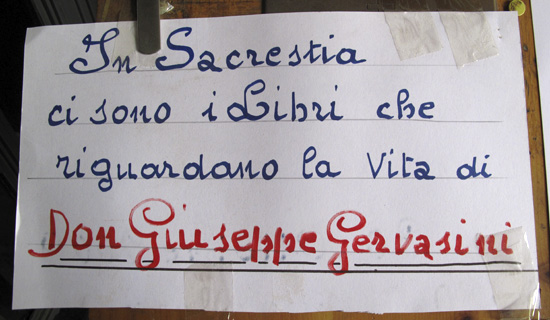 In Sacrestia
ci sono i Libri che
riguardano la Vita di
Don Giuseppe Gervasini